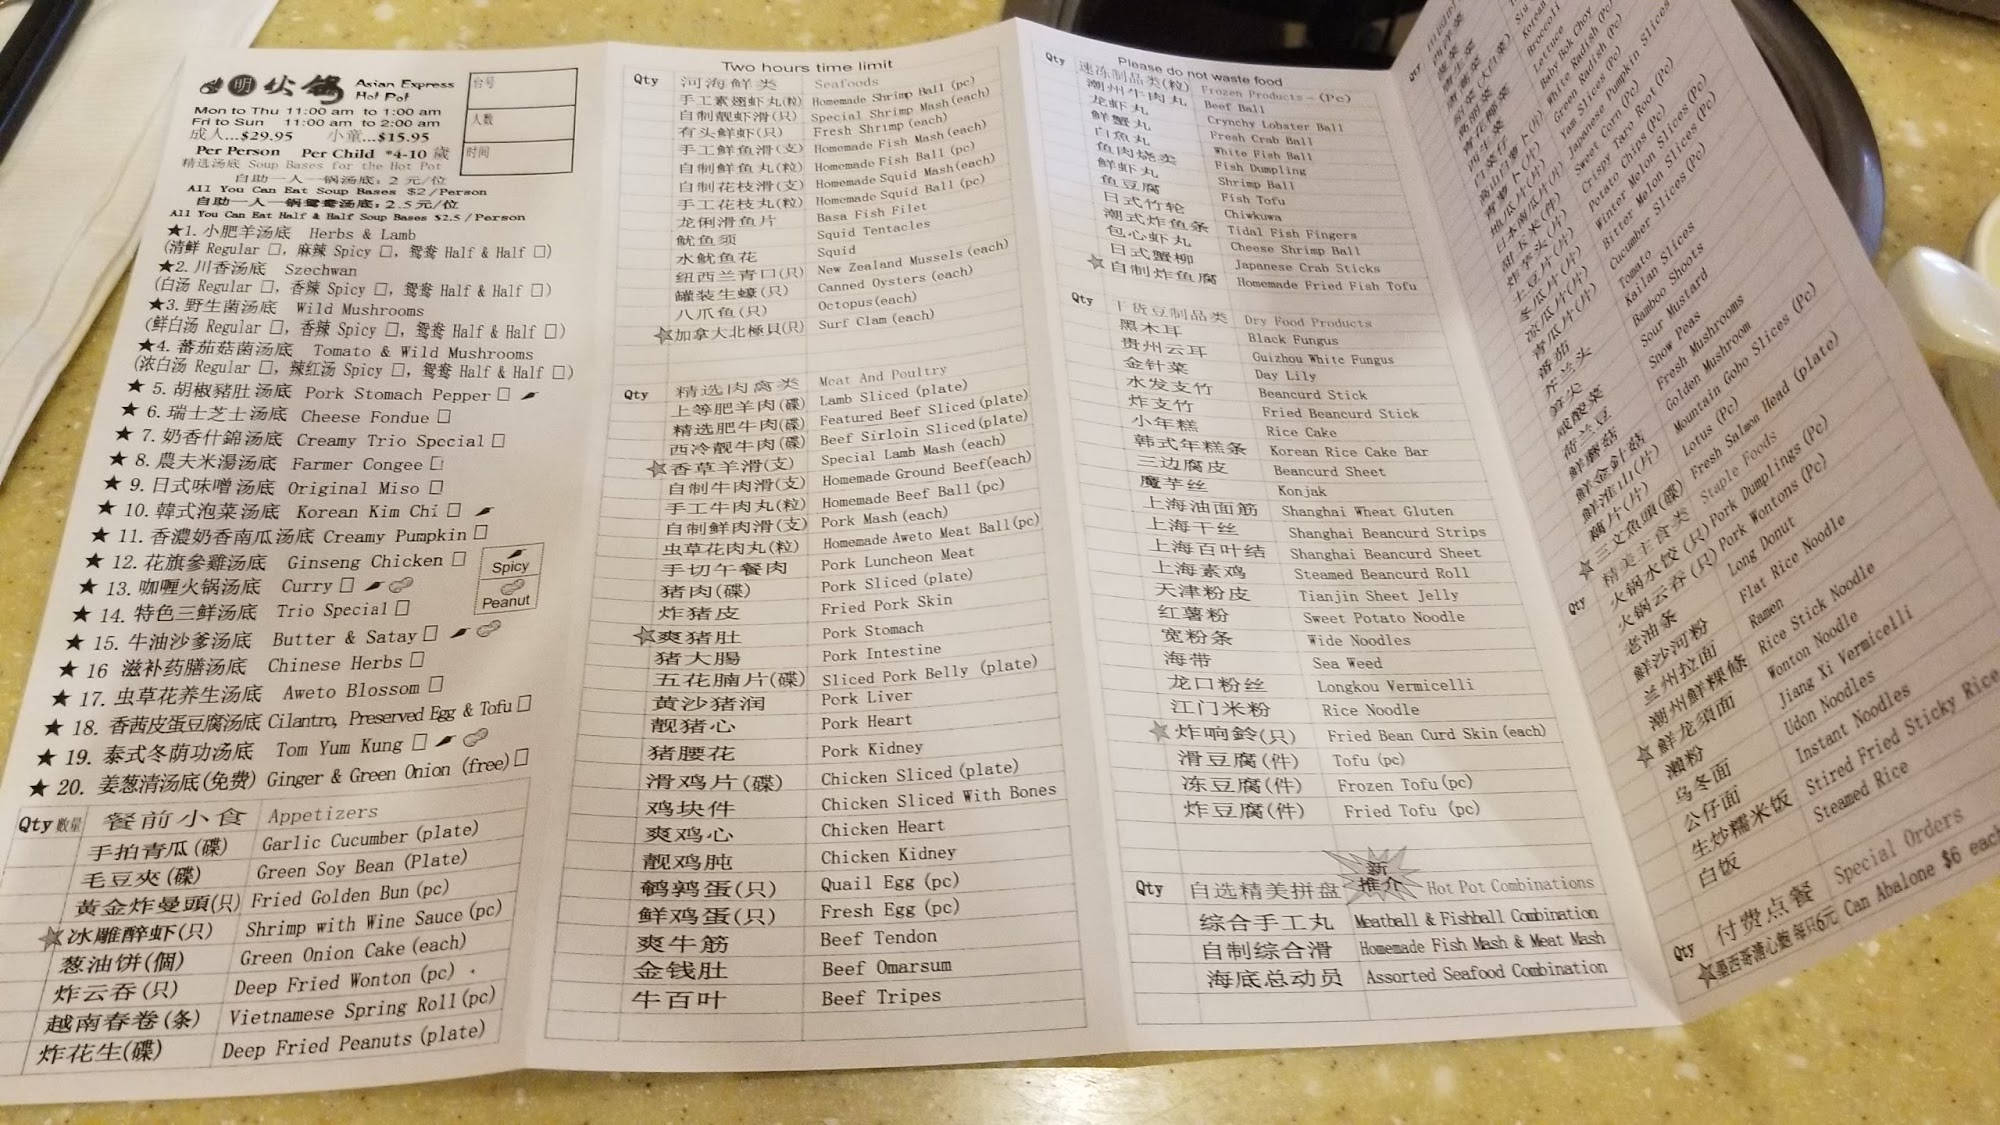 明 火锅 Asian Express
Hot Pot
Mon to Thu 11:00 am to 1:00 am
Fri to Sun 11:00 am to 2:00 am
成人...$29.95 小童...$15.95
Per Person Per Child *4-10 歲
台号
人数
时间
精选汤底 Soup Bases for the Hot Pot
自助一人一锅汤底: 2 元/位
All You Can Eat Soup Bases $2/Person
自助一人一锅鸳鸯汤底: 2.5元/位
All You Can Eat Half & Half Soup Bases $2.5/Person
★1. 小肥羊汤底 Herbs & Lamb
(清鲜 Regular □, 麻辣 Spicy □, 鸳鸯 Half & Half □)
★2. 川香汤底 Szechwan
(白汤 Regular □, 香辣 Spicy □, 鸳鸯 Half & Half □)
★3. 野生菌汤底 Wild Mushrooms
(鲜白汤 Regular □, 香辣 Spicy □, 鸳鸯 Half & Half □)
★4. 蕃茄菇菌汤底 Tomato & Wild Mushrooms
(浓白汤 Regular □, 辣红汤 Spicy □, 鸳鸯 Half & Half □)
★ 5. 胡椒豬肚汤底 Pork Stomach Pepper □
★ 6. 瑞士芝士汤底 Cheese Fondue □
★ 7. 奶香什錦汤底 Creamy Trio Special □
★ 8. 農夫米湯汤底 Farmer Congee □
★ 9. 日式味噌汤底 Original Miso □
★ 10. 韓式泡菜汤底 Korean Kim Chi □
★ 11. 香濃奶香南瓜汤底 Creamy Pumpkin □
★ 12. 花旗參雞汤底 Ginseng Chicken □
★ 13. 咖喱火锅汤底 Curry □
★ 14. 特色三鲜汤底 Trio Special □
★ 15. 牛油沙爹汤底 Butter & Satay □
★ 16 滋补药膳汤底 Chinese Herbs □
★ 17. 虫草花养生汤底 Aweto Blossom □
★ 18. 香茜皮蛋豆腐汤底 Cilantro, Preserved Egg & Tofu □
★ 19. 泰式冬荫功汤底 Tom Yum Kung □
★ 20. 姜葱清汤底(免费) Ginger & Green Onion (free) □
Spicy
Peanut
Qty 數量 餐前小食 Appetizers
手拍青瓜(碟) Garlic Cucumber (plate)
毛豆夾(碟) Green Soy Bean (Plate)
黃金炸曼頭(只) Fried Golden Bun (pc)
冰雕醉虾(只) Shrimp with Wine Sauce (pc)
葱油饼(個) Green Onion Cake (each)
炸云吞(只) Deep Fried Wonton (pc)
越南春卷(条) Vietnamese Spring Roll (pc)
炸花生(碟) Deep Fried Peanuts (plate)
Two hours time limit
Qty 河海鲜类 Seafoods
手工素翅虾丸(粒) Homemade Shrimp Ball (pc)
自制靓虾滑(只) Special Shrimp Mash (each)
有头鲜虾(只) Fresh Shrimp (each)
手工鲜鱼滑(支) Homemade Fish Mash (each)
自制鲜鱼丸(粒) Homemade Fish Ball (pc)
自制花枝滑(支) Homemade Squid Mash (each)
手工花枝丸(粒) Homemade Squid Ball (pc)
龙俐滑鱼片 Basa Fish Filet
鱿鱼须 Squid Tentacles
水鱿鱼花 Squid
纽西兰青口(只) New Zealand Mussels (each)
罐装生蠔(只) Canned Oysters (each)
八爪鱼(只) Octopus (each)
加拿大北極貝(只) Surf Clam (each)
Qty 精选肉禽类 Meat And Poultry
上等肥羊肉(碟) Lamb Sliced (plate)
精选肥牛肉(碟) Featured Beef Sliced (plate)
西冷靓牛肉(碟) Beef Sirloin Sliced (plate)
香草羊滑(支) Special Lamb Mash (each)
自制牛肉滑(支) Homemade Ground Beef (each)
手工牛肉丸(粒) Homemade Beef Ball (pc)
自制鲜肉滑(支) Pork Mash (each)
虫草花肉丸(粒) Homemade Aweto Meat Ball (pc)
手切午餐肉 Pork Luncheon Meat
猪肉(碟) Pork Sliced (plate)
炸猪皮 Fried Pork Skin
爽猪肚 Pork Stomach
猪大腸 Pork Intestine
五花腩片(碟) Sliced Pork Belly (plate)
黄沙猪润 Pork Liver
靓猪心 Pork Heart
猪腰花 Pork Kidney
滑鸡片(碟) Chicken Sliced (plate)
鸡块件 Chicken Sliced With Bones
爽鸡心 Chicken Heart
靓鸡肫 Chicken Kidney
鹌鹑蛋(只) Quail Egg (pc)
鲜鸡蛋(只) Fresh Egg (pc)
爽牛筋 Beef Tendon
金钱肚 Beef Omarsum
牛百叶 Beef Tripes
Please do not waste food
Qty 速冻制品类(粒) Frozen Products - (Pc)
潮州牛肉丸 Beef Ball
龙虾丸 Crynchy Lobster Ball
鲜蟹丸 Fresh Crab Ball
白鱼丸 White Fish Ball
鱼肉烧卖 Fish Dumpling
鲜虾丸 Shrimp Ball
鱼豆腐 Fish Tofu
日式竹轮 Chiwkuwa
潮式炸鱼条 Tidal Fish Fingers
包心虾丸 Cheese Shrimp Ball
日式蟹柳 Japanese Crab Sticks
自制炸鱼腐 Homemade Fried Fish Tofu
Qty 干货豆制品类 Dry Food Products
黑木耳 Black Fungus
贵州云耳 Guizhou White Fungus
金针菜 Day Lily
水发支竹 Beancurd Stick
炸支竹 Fried Beancurd Stick
小年糕 Rice Cake
韩式年糕条 Korean Rice Cake Bar
三边腐皮 Beancurd Sheet
魔芋丝 Konjak
上海油面筋 Shanghai Wheat Gluten
上海干丝 Shanghai Beancurd Strips
上海百叶结 Shanghai Beancurd Sheet
上海素鸡 Steamed Beancurd Roll
天津粉皮 Tianjin Sheet Jelly
红薯粉 Sweet Potato Noodle
宽粉条 Wide Noodles
海带 Sea Weed
龙口粉丝 Longkou Vermicelli
江门米粉 Rice Noodle
炸响鈴(只) Fried Bean Curd Skin (each)
滑豆腐(件) Tofu (pc)
冻豆腐(件) Frozen Tofu (pc)
炸豆腐(件) Fried Tofu (pc)
新
推介
Qty 自选精美拼盘 Hot Pot Combinations
综合手工丸 Meatball & Fishball Combination
自制综合滑 Homemade Fish Mash & Meat Mash
海底总动员 Assorted Seafood Combination
Qty
Broccoli
Lettuce
Baby Bok Choy
White Radish (Pc)
Green Radish (Pc)
Yam Slices (Pc)
Japanese Pumpkin Slices
Sweet Corn (Pc)
Crispy Taro Root (Pc)
土豆片(片) Potato Chips (Pc)
冬瓜片(片) Winter Melon Slices (Pc)
凉瓜片(片) Bitter Melon Slices (Pc)
青瓜片(片) Cucumber Slices (Pc)
番茄 Tomato
芥兰头 Kailan Slices
笋尖 Bamboo Shoots
咸酸菜 Sour Mustard
荷兰豆 Snow Peas
鲜蘑菇 Fresh Mushrooms
鲜金針菇 Golden Mushroom
鲜淮山(片) Mountain Gobo Slices (Pc)
藕片(片) Lotus (Pc)
三文魚頭(碟) Fresh Salmon Head (plate)
Qty 精美主食类 Staple Foods
火锅水饺(只) Pork Dumplings (Pc)
火锅云吞(只) Pork Wontons (Pc)
老油条 Long Donut
鲜沙河粉 Flat Rice Noodle
兰州拉面 Ramen
潮州鲜粿條 Rice Stick Noodle
鲜龙須面 Wonton Noodle
濑粉 Jiang Xi Vermicelli
乌冬面 Udon Noodles
公仔面 Instant Noodles
生炒糯米饭 Stired Fried Sticky Rice
白饭 Steamed Rice
Qty 付费点餐 Special Orders
墨西哥溏心鲍 每只6元 Can Abalone $6 each